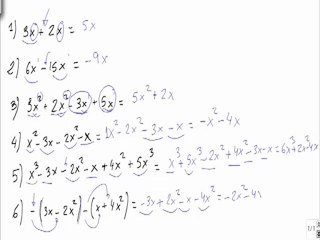 1) 3x + 2x = 5x
2) 6x - 15x = -9x
3) 3x² + 2x² - 3x + 5x = 5x² + 2x
4) x² - 3x - 2x² - x = x² - 2x² - 3x - x = -x² - 4x
5) x³ - 3x - 2x² - x + 4x² + 5x³ = x³ + 5x³ - 2x² + 4x² - 3x - x = 6x³ + 2x² - 4x
6) -(3x - 2x²) - (x + 4x²) = -3x + 2x² - x - 4x² = -2x² - 4x